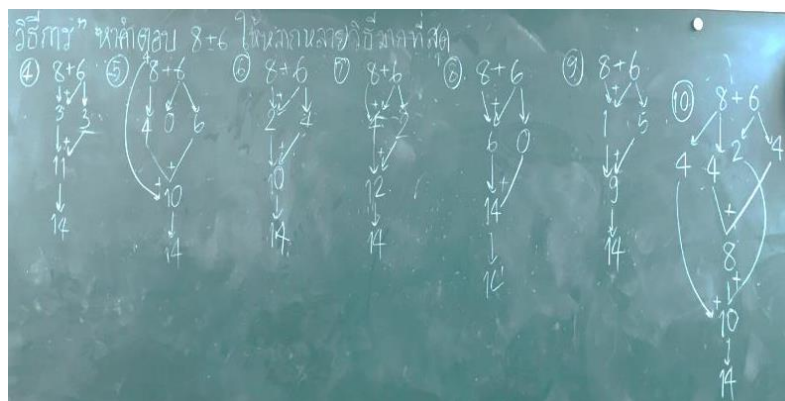 วิธีการ" หาคำตอบ 8+6 ให้หลากหลายวิธีมากที่สุด
④ 8+6
+
3 3
+
11
14
⑤ 8+6
4 0 6
+
+ 10
14
⑥ 8+6
+
2 4
+
10
14
⑦ 8+6
+
2
+
12
14
⑧ 8+6
+
6 0
14
+
14
⑨ 8+6
+
1 5
+
9
14
⑩ 8+6
4 4 2 4
+
8
+ +
10
14